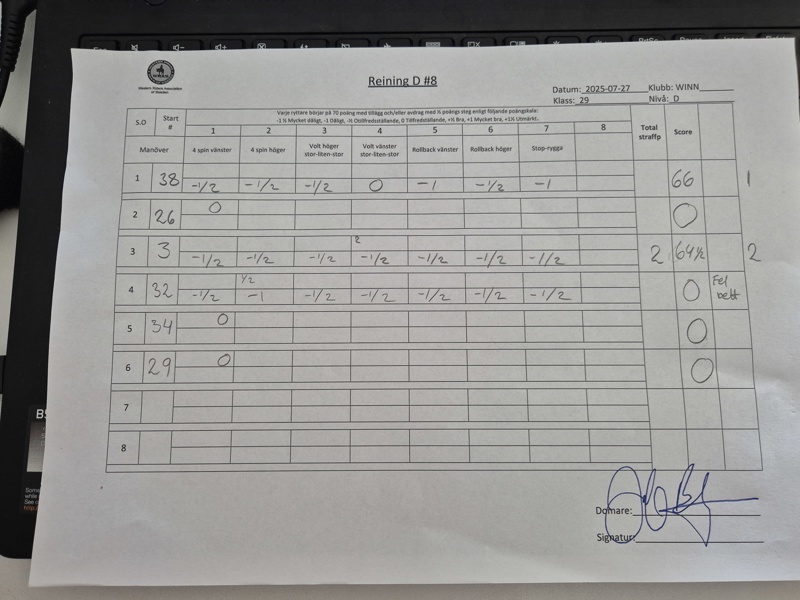 Western Riders Association
of Sweden
Reining D #8
Datum: 2025-07-27 Klubb: WINN
Klass: 29 Nivå: D
Varje ryttare börjar på 70 poäng med tillägg och/eller avdrag med ½ poängs steg enligt följande poängskala:
-1 ½ Mycket dåligt, -1 Dåligt, -½ Otillfredsställande, 0 Tillfredsställande, +½ Bra, +1 Mycket bra, +1½ Utmärkt.
S.O Start # 1 2 3 4 5 6 7 8 Total straffp Score
Manöver 4 spin vänster 4 spin höger Volt höger stor-liten-stor Volt vänster stor-liten-stor Rollback vänster Rollback höger Stop-rygga
1 38 -1/2 -1/2 -1/2 0 -1 -1/2 -1 66 1
2 26 0 0
2
3 3 -1/2 -1/2 -1/2 -1/2 -1/2 -1/2 -1/2 2 64½ 2
1/2
4 32 -1/2 -1 -1/2 -1/2 -1/2 -1/2 -1/2 0 Fel bett
5 34 0 0
6 29 0 0
7
8
Domare:
Signatur: